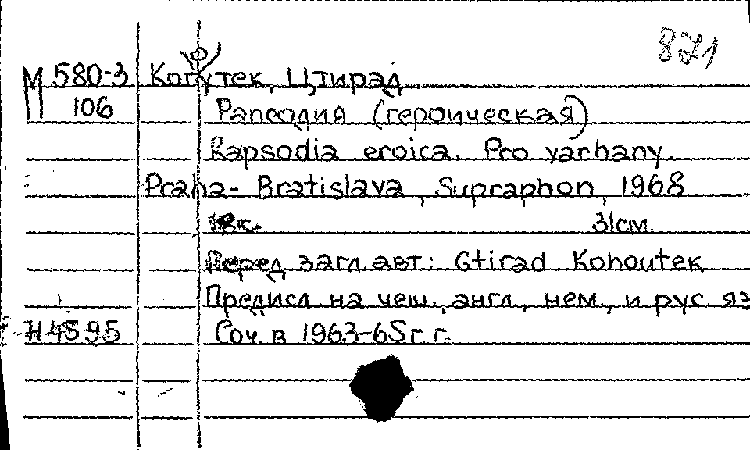 821
М 580-3 Когоутек, Цтирад
106 Рапсодия (героическая)
Rapsodia eroica. Pro varhany.
Praha - Bratislava, Supraphon, 1968
31см.
Перед загл. авт.: Ctirad Kohoutek
Предисл на чеш., англ., нем., и рус яз
Н4595 Соч. в 1963-65 г.г.